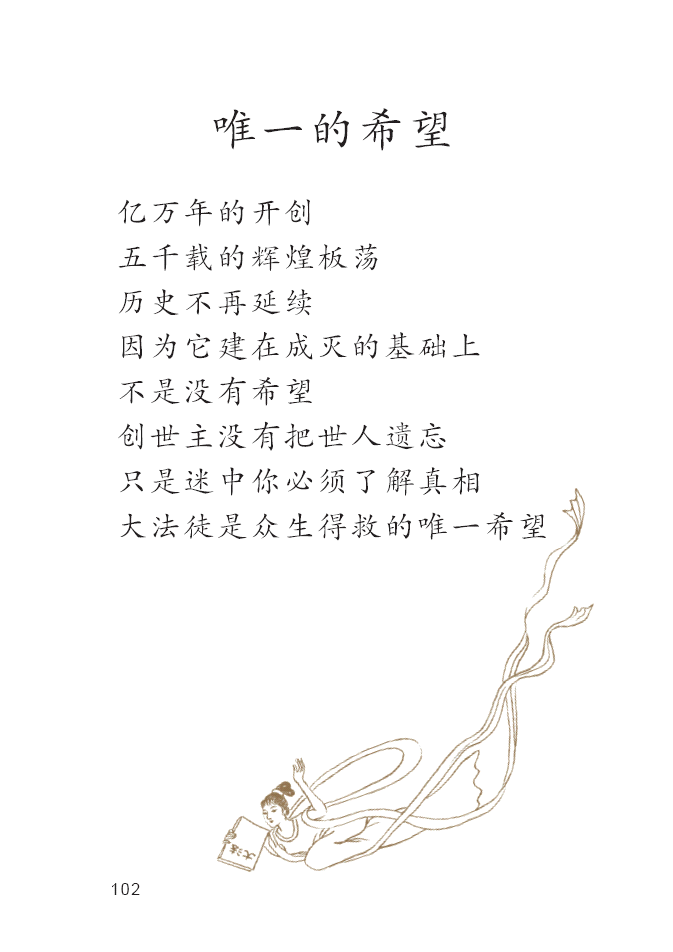 唯一的希望
亿万年的开创
五千载的辉煌板荡
历史不再延续
因为它建在成灭的基础上
不是没有希望
创世主没有把世人遗忘
只是迷中你必须了解真相
大法徒是众生得救的唯一希望
大法
102